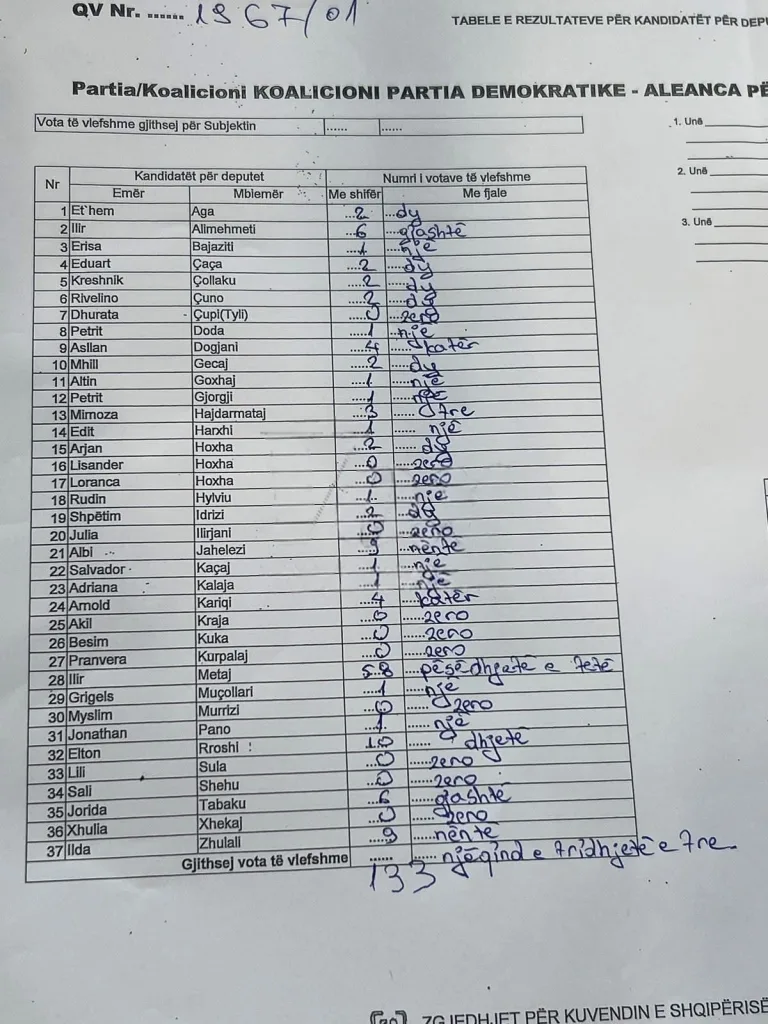 QV Nr. ...... 1967/01
TABELE E REZULTATEVE PËR KANDIDATËT PËR DEPU
Partia/Koalicioni KOALICIONI PARTIA DEMOKRATIKE - ALEANCA PË
Vota të vlefshme gjithsej për Subjektin ...... ......
1. Unë
2. Unë
3. Unë
Nr Kandidatët për deputet Numri i votave të vlefshme
Emër Mblemër Me shifër Me fjale
1 Et`hem Aga 2 dy
2 Ilir Alimehmeti 6 gjashtë
3 Erisa Bajaziti 1 një
4 Eduart Çaça 2 dy
5 Kreshnik Çollaku 2 dy
6 Rivelino Çuno 2 dy
7 Dhurata Çupi(Tyli) 0 zero
8 Petrit Doda 1 një
9 Asllan Dogjani 4 katër
10 Mhill Gecaj 2 dy
11 Altin Goxhaj 1 një
12 Petrit Gjorgji 1 një
13 Mimoza Hajdarmataj 3 tre
14 Edit Harxhi 1 një
15 Arjan Hoxha 2 dy
16 Lisander Hoxha 0 zero
17 Loranca Hoxha 0 zero
18 Rudin Hylviu 1 një
19 Shpëtim Idrizi 2 dy
20 Julia Ilirjani 0 zero
21 Albi Jahelezi 9 nëntë
22 Salvador Kaçaj 1 një
23 Adriana Kalaja 1 një
24 Arnold Kariqi 4 katër
25 Akil Kraja 0 zero
26 Besim Kuka 0 zero
27 Pranvera Kurpalaj 0 zero
28 Ilir Metaj 58 pësëdhjetë e tetë
29 Grigels Muçollari 1 një
30 Myslim Murrizi 0 zero
31 Jonathan Pano 1 një
32 Elton Rroshi 10 dhjetë
33 Lili Sula 0 zero
34 Sali Shehu 0 zero
35 Jorida Tabaku 6 gjashtë
36 Xhulia Xhekaj 0 zero
37 Ilda Zhulali 9 nëntë
Gjithsej vota të vlefshme ...... 133 ...... njëqind e tridhjetë e tre.
ZGJEDHJET PËR KUVENDIN E SHQIPËRISË